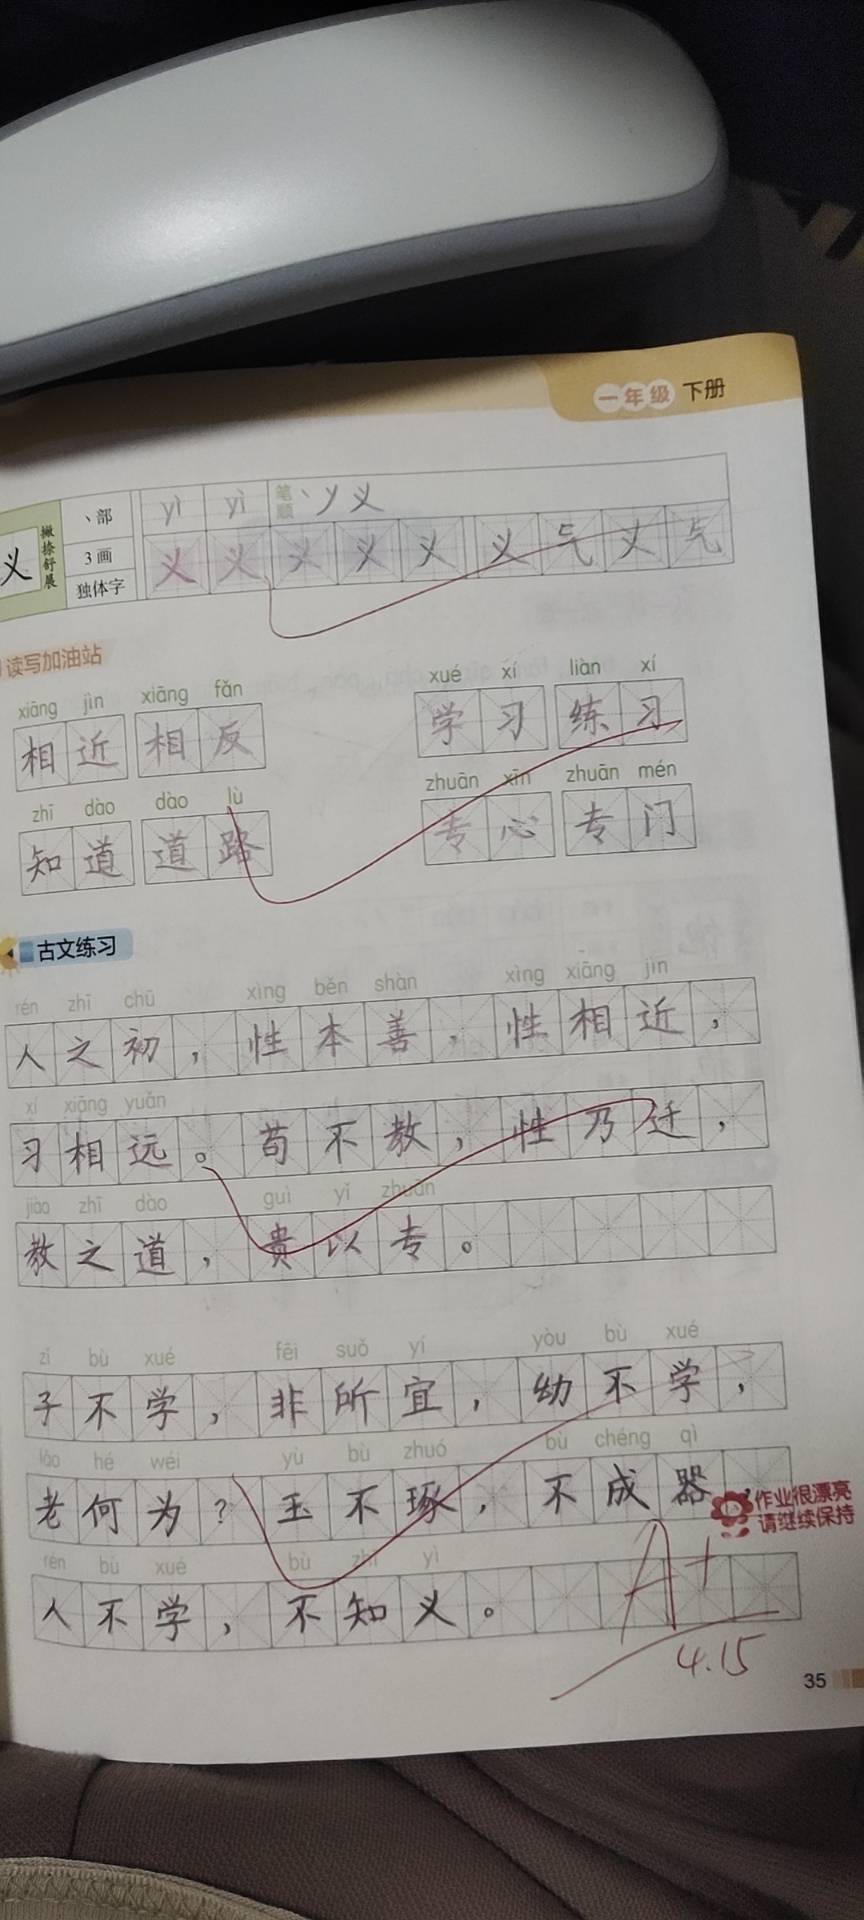 一年级 下册
义 撇捺舒展 丶部 yì yì 笔顺 丶 丿 义
3画 义 义 义 义 义 义 气 义 气
独体字
读写加油站
xiāng jìn xiāng fǎn xué xí liàn xí
相近 相反 学习 练习
zhī dào dào lù zhuān xīn zhuān mén
知道 道路 专心 专门
古文练习
rén zhī chū xìng běn shàn xìng xiāng jìn
人之初，性本善，性相近，
xí xiāng yuǎn
习相远。苟不教，性乃迁，
jiào zhī dào guì yǐ zhuān
教之道，贵以专。
zǐ bù xué fēi suǒ yí yòu bù xué
子不学，非所宜，幼不学，
lǎo hé wéi yù bù zhuó bù chéng qì
老何为？玉不琢，不成器，
作业很漂亮
请继续保持
rén bù xué bù zhī yì
人不学，不知义。
A+
4.15
35